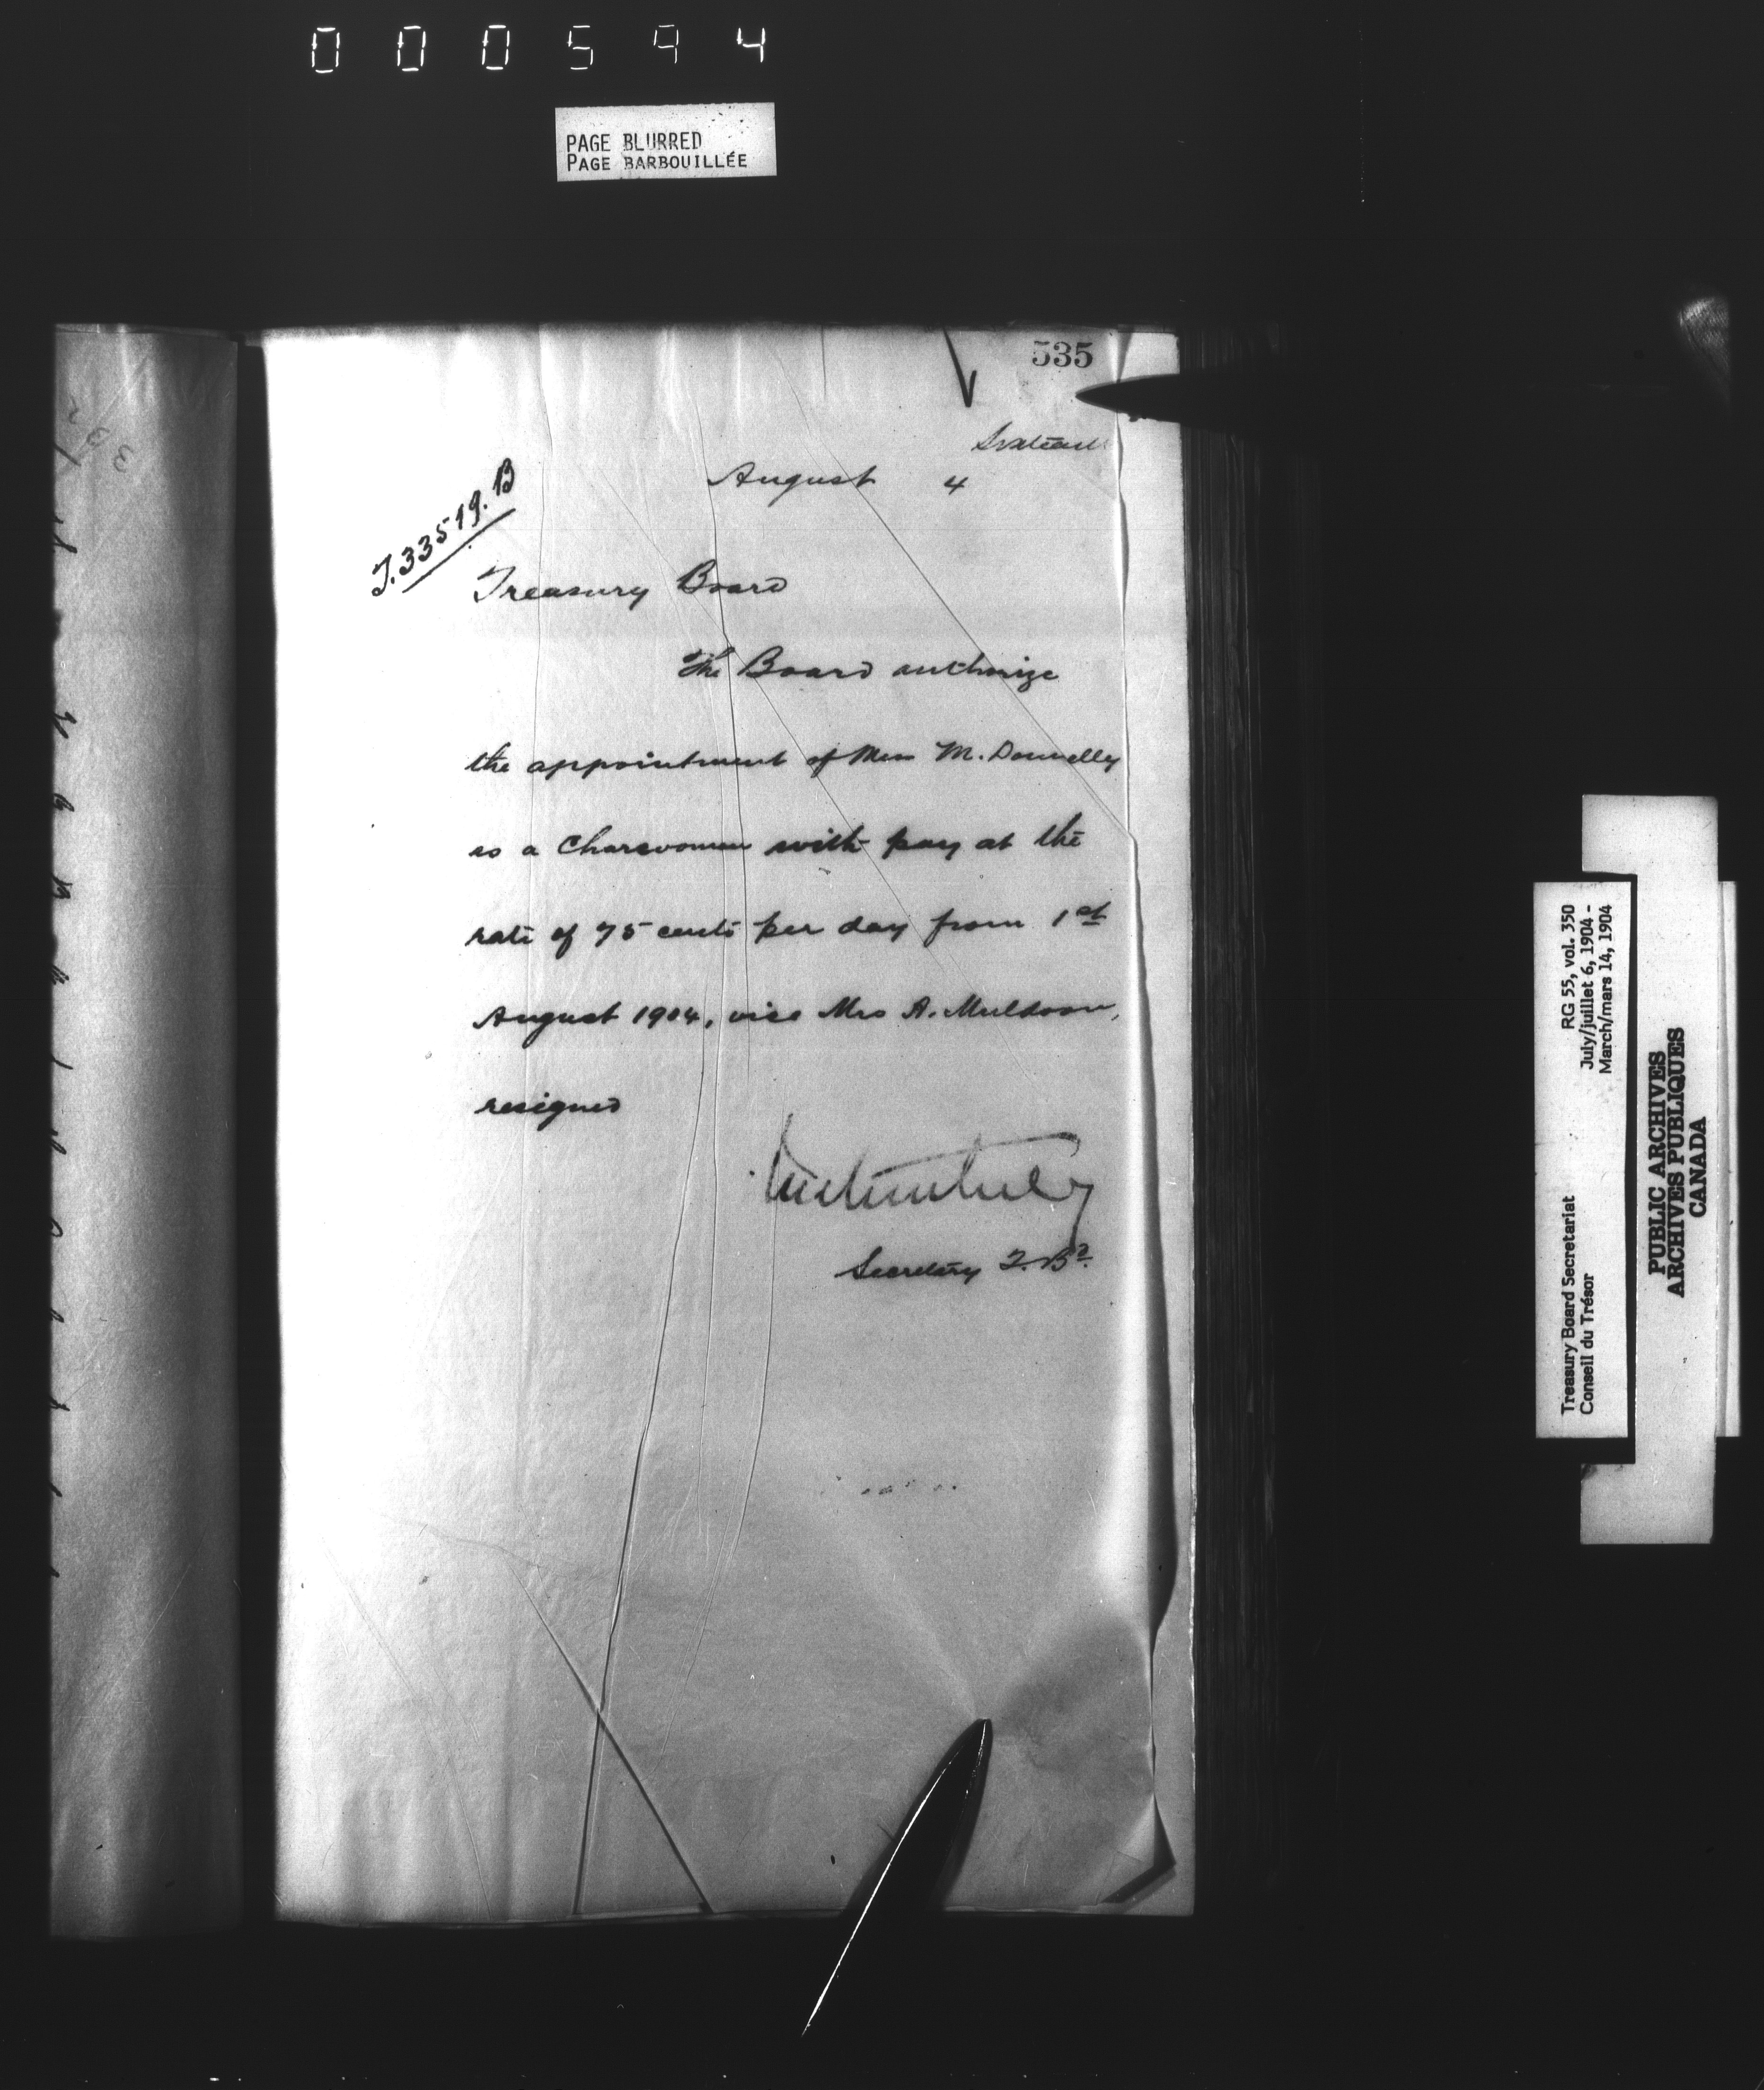 000594
PAGE BLURRED
PAGE BARBOUILLÉE
535
August 4
T.33519.B
Treasury Board
The Board authorize
the appointment of M. Donnelly
as a Charwoman with pay at the
rate of 75 cents per day from 1st
August 1904, vice Mrs A. Muldoon,
resigned
Secretary T. Bd.
RG 55, vol. 350
July/juillet 6, 1904 -
March/mars 14, 1904
Treasury Board Secretariat
Conseil du Trésor
PUBLIC ARCHIVES
ARCHIVES PUBLIQUES
CANADA